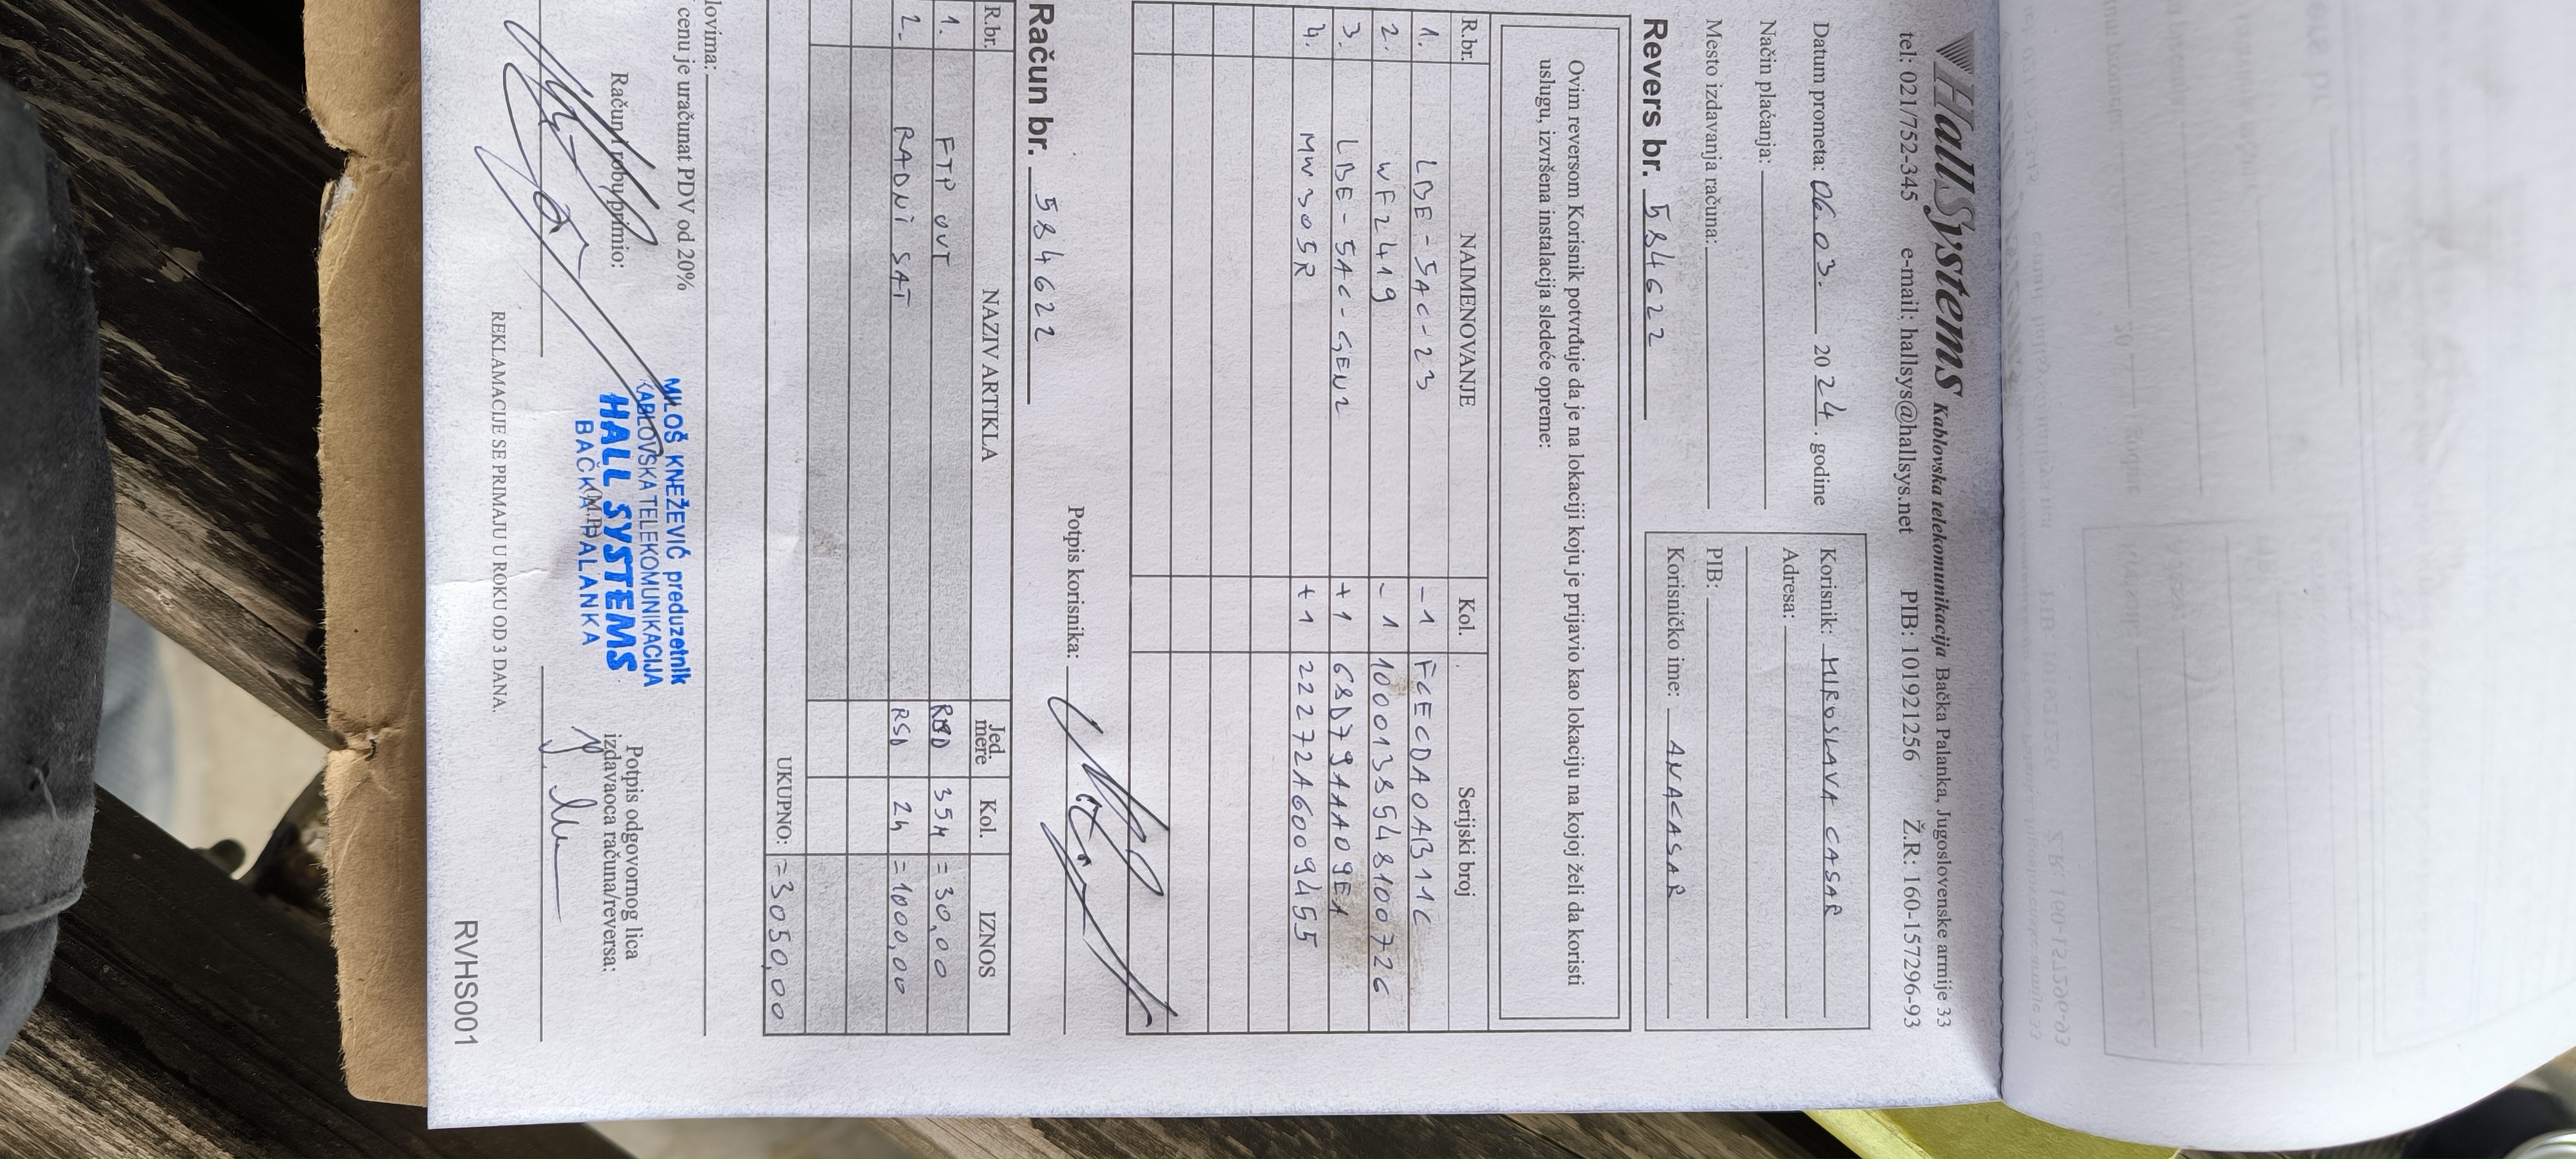 HallSystems Kablovska telekomunikacija Bačka Palanka, Jugoslovenske armije 33
tel: 021/752-345 e-mail: hallsys@hallsys.net PIB: 101921256 Ž.R: 160-157296-93
Datum prometa: 06.03. 2024. godine
Način plaćanja:
Mesto izdavanja računa:
Korisnik: MIROSLAVA CASAR
Adresa:
PIB:
Korisničko ime: ANACASAR
Revers br. 584622
Ovim reversom Korisnik potvrđuje da je na lokaciji koju je prijavio kao lokaciju na kojoj želi da koristi
uslugu, izvršena instalacija sledeće opreme:
R.br. NAIMENOVANJE Kol. Serijski broj
1. LBE-5AC-23 -1 FCECDA0AB11C
2. WF2419 -1 1000138548100726
3. LBE-5AC-GEN2 +1 68D79AAA09EA
4. MW305R +1 22272A6009455
Potpis korisnika:
Račun br. 584622
R.br. NAZIV ARTIKLA Jed. mere Kol. IZNOS
1. FTP OUT RSD 35m =30,00
2. RADNI SAT RSD 2h =1000,00
UKUPNO: =3050,00
lovima:
cenu je uračunat PDV od 20%
Račun i robu primio:
MILOŠ KNEŽEVIĆ preduzetnik
KABLOVSKA TELEKOMUNIKACIJA
HALL SYSTEMS
BAČKA PALANKA
(M.P.)
Potpis odgovornog lica
izdavaoca računa/reversa:
REKLAMACIJE SE PRIMAJU U ROKU OD 3 DANA.
RVHS001